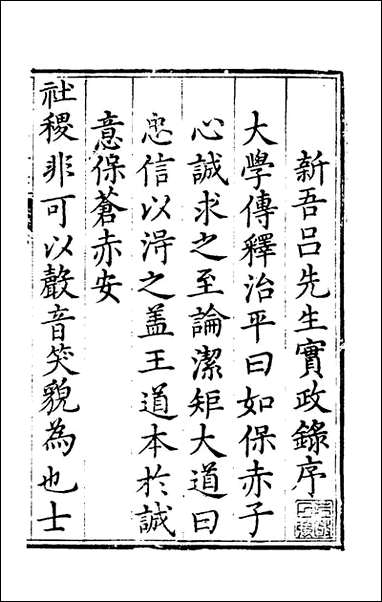 新吾呂先生實政錄序
大學傳釋治平曰如保赤子
心誠求之至論潔矩大道曰
忠信以淂之盖王道本於誠
意保蒼赤安
社稷非可以聲音笑貌為也士